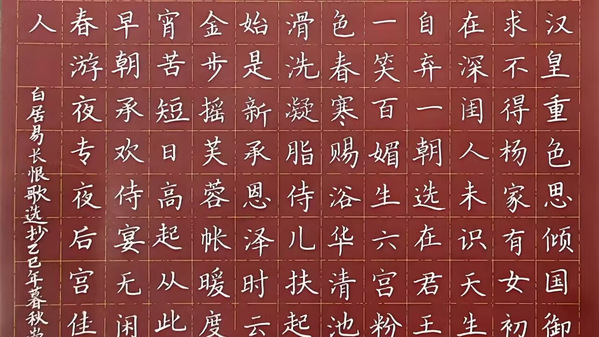 汉皇重色思倾国御
求不得杨家有女初
在深闺人未识天生
自弃一朝选在君王
一笑百媚生六宫粉
色春寒赐浴华清池
滑洗凝脂侍儿扶起
始是新承恩泽时云
金步摇芙蓉帐暖度
宵苦短日高起从此
早朝承欢侍宴无闲
春游夜专夜后宫佳
人
白居易长恨歌选抄乙巳年暮秋